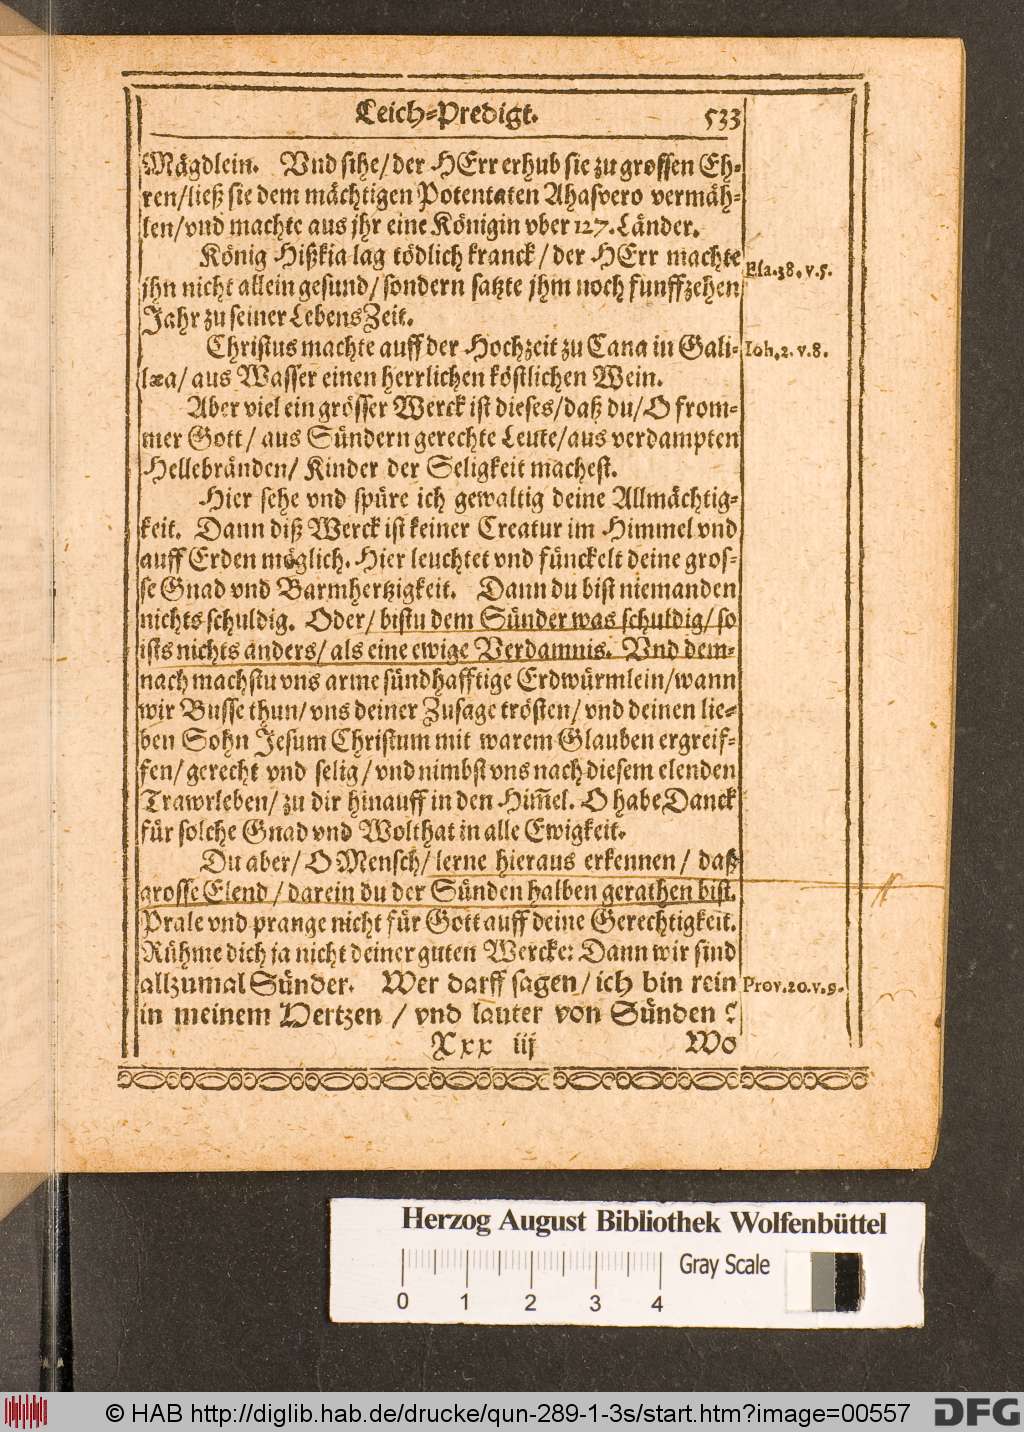 Leich-Predigt. 533
Mägdlein. Vnd sihe/ der HErr erhub sie zu grossen Eh-
ren/ ließ sie dem mächtigen Potentaten Ahasvero vermäh-
len/ vnd machte aus jhr eine Königin vber 127. Länder.
König Hißkia lag tödlich kranck/ der HErr machte
Esa.38. v.5.
jhn nicht allein gesund/ sondern satzte jhm noch funffzehen
Jahr zu seiner LebensZeit.
Christus machte auff der Hochzeit zu Cana in Gali-
Ioh.2. v.8.
læa/ aus Wasser einen herrlichen köstlichen Wein.
Aber viel ein grösser Werck ist dieses/ daß du/ O from-
mer Gott/ aus Sündern gerechte Leute/ aus verdampten
Hellebränden/ Kinder der Seligkeit machest.
Hier sehe vnd spüre ich gewaltig deine Allmächtig-
keit. Dann diß Werck ist keiner Creatur im Himmel vnd
auff Erden möglich. Hier leuchtet vnd fünckelt deine gros-
se Gnad vnd Barmhertzigkeit. Dann du bist niemanden
nichts schuldig. Oder/ bistu dem Sünder was schuldig/ so
ists nichts anders/ als eine ewige Verdamnis. Vnd dem-
nach machstu vns arme sündhafftige Erdwürmlein/ wann
wir Busse thun/ vns deiner Zusage trösten/ vnd deinen lie-
ben Sohn Jesum Christum mit warem Glauben ergreif-
fen/ gerecht vnd selig/ vnd nimbst vns nach diesem elenden
Trawrleben/ zu dir hinauff in den Him̄el. O habe Danck
für solche Gnad vnd Wolthat in alle Ewigkeit.
Du aber/ O Mensch/ lerne hieraus erkennen/ daß
grosse Elend/ darein du der Sünden halben gerathen bist.
Prale vnd prange nicht für Gott auff deine Gerechtigkeit.
Rühme dich ja nicht deiner guten Wercke: Dann wir sind
allzumal Sünder. Wer darff sagen/ ich bin rein
Prov.20. v.9.
in meinem Hertzen/ vnd lauter von Sünden?
Xxx iij Wo
Herzog August Bibliothek Wolfenbüttel
Gray Scale
0 1 2 3 4
© HAB http://diglib.hab.de/drucke/qun-289-1-3s/start.htm?image=00557
DFG